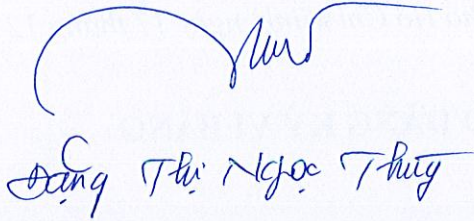 Đặng Thị Ngọc Thúy